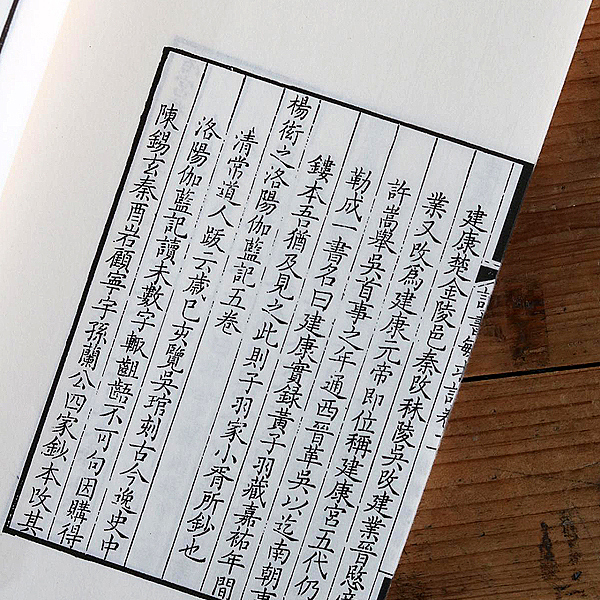 建康楚金陵邑秦改秣陵吳改建業晉愍
業又改為建康元帝即位稱建康宮五代仍
許嵩舉吳首事之年通西晉革吳以迄南朝事
勒成一書名曰建康實錄黃子羽藏嘉祐年間
鏤本吾猶及見之此則子羽家小胥所鈔也
楊衒之洛陽伽藍記五卷
清常道人跋云歲己亥覽吳琯刻古今逸史中
洛陽伽藍記讀未數字輒齟齬不可句因購得
陳錫玄秦酉岩顧寧宇孫蘭公四家鈔本改其